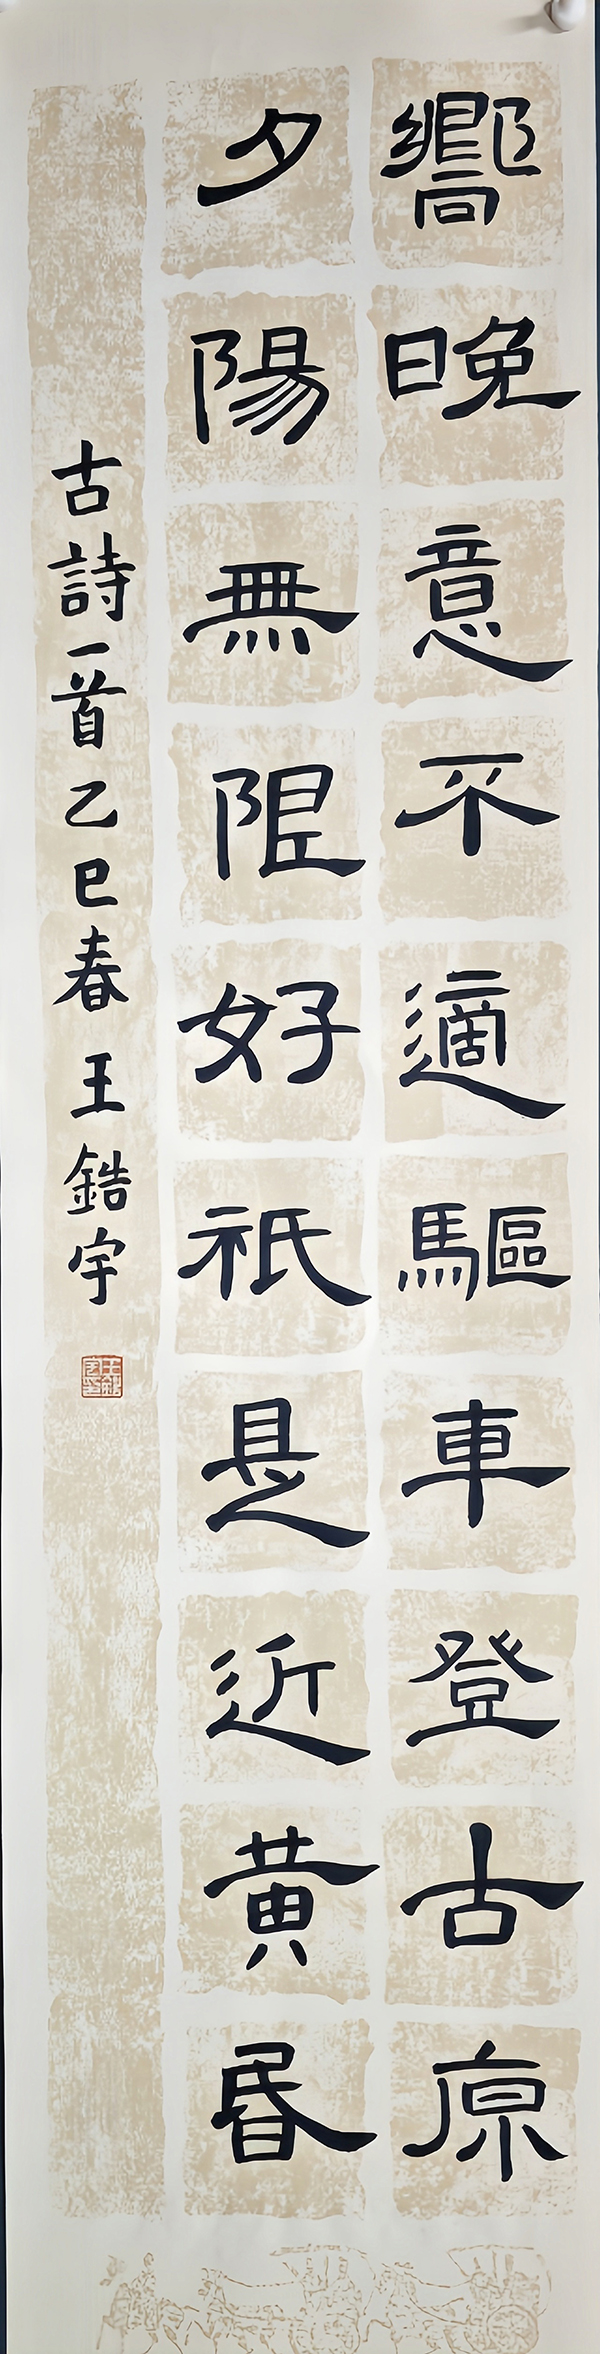 嚮晚意不適驅車登古原
夕陽無限好祇是近黄昬
古詩一首乙巳春王鋯宇